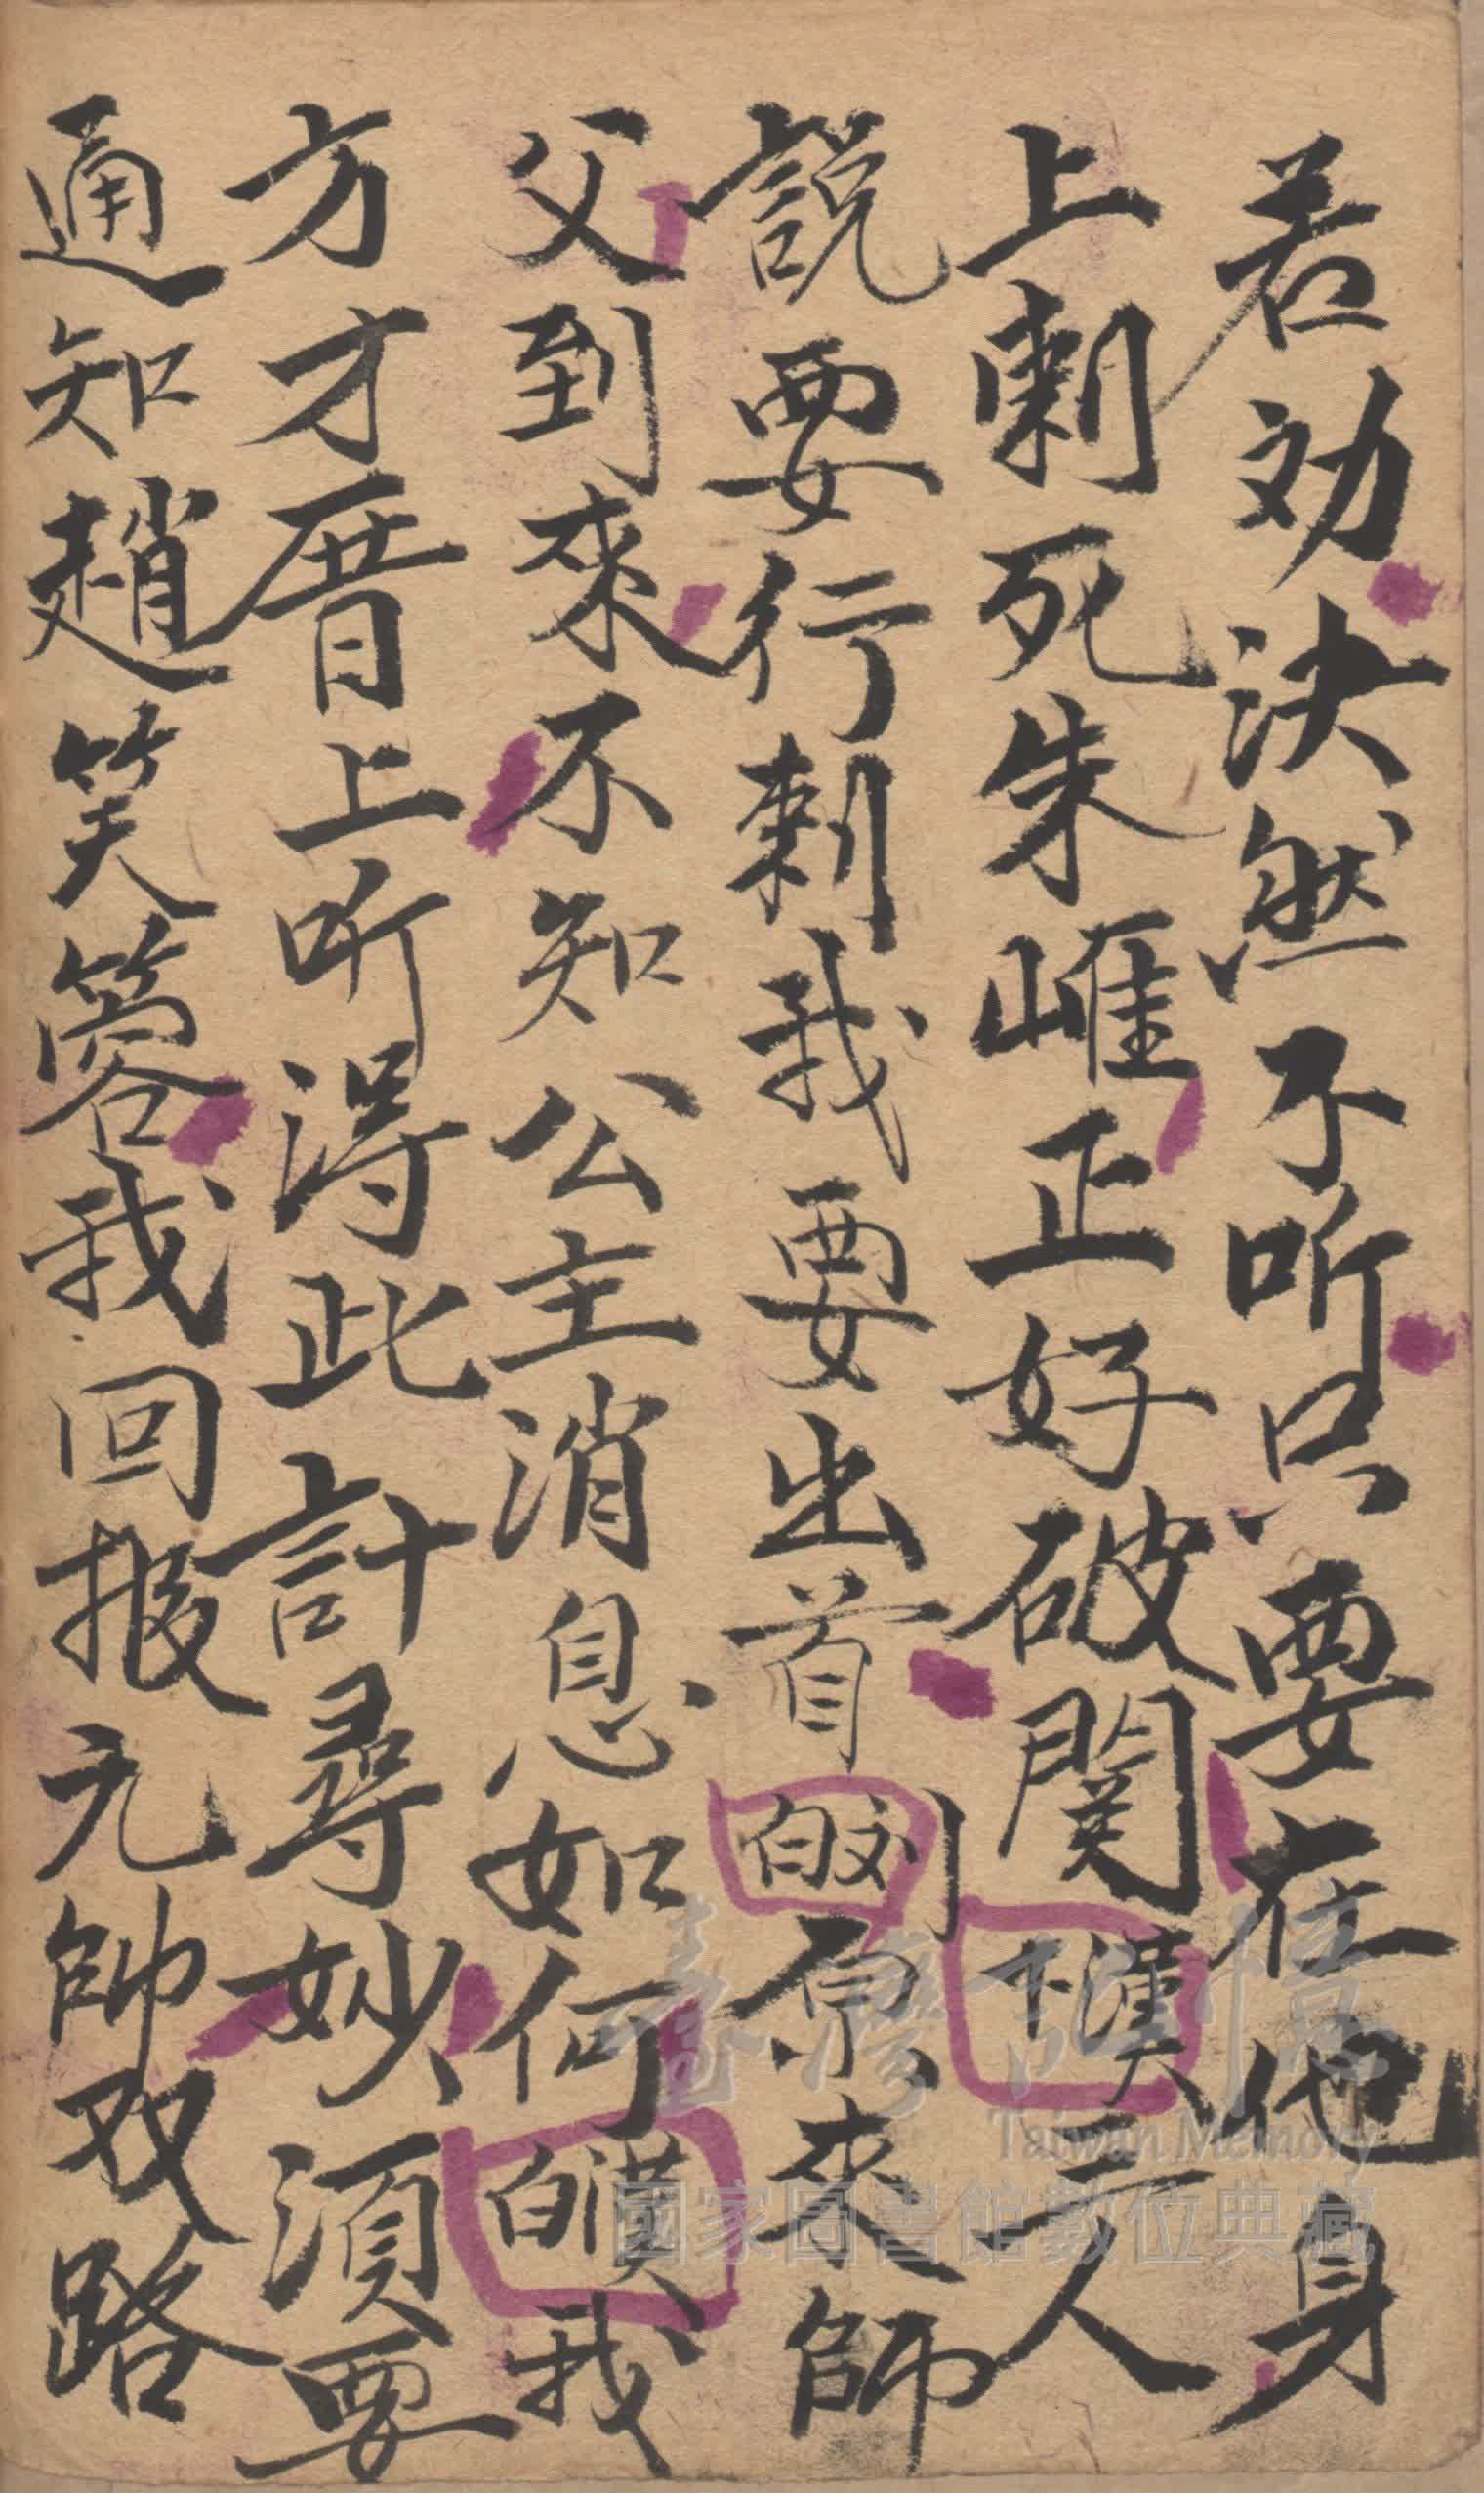 若効決然不听只要在他身
上刺死朱崕正好破関卞漢二人
説要行刺我要出首刘白原來師
父到來不知公主消息如何漢白我
方才厝上听得此計尋妙須要
通知趙笑奪我回报元帥双路
臺灣記憶
Taiwan Memory
國家圖書館數位典藏